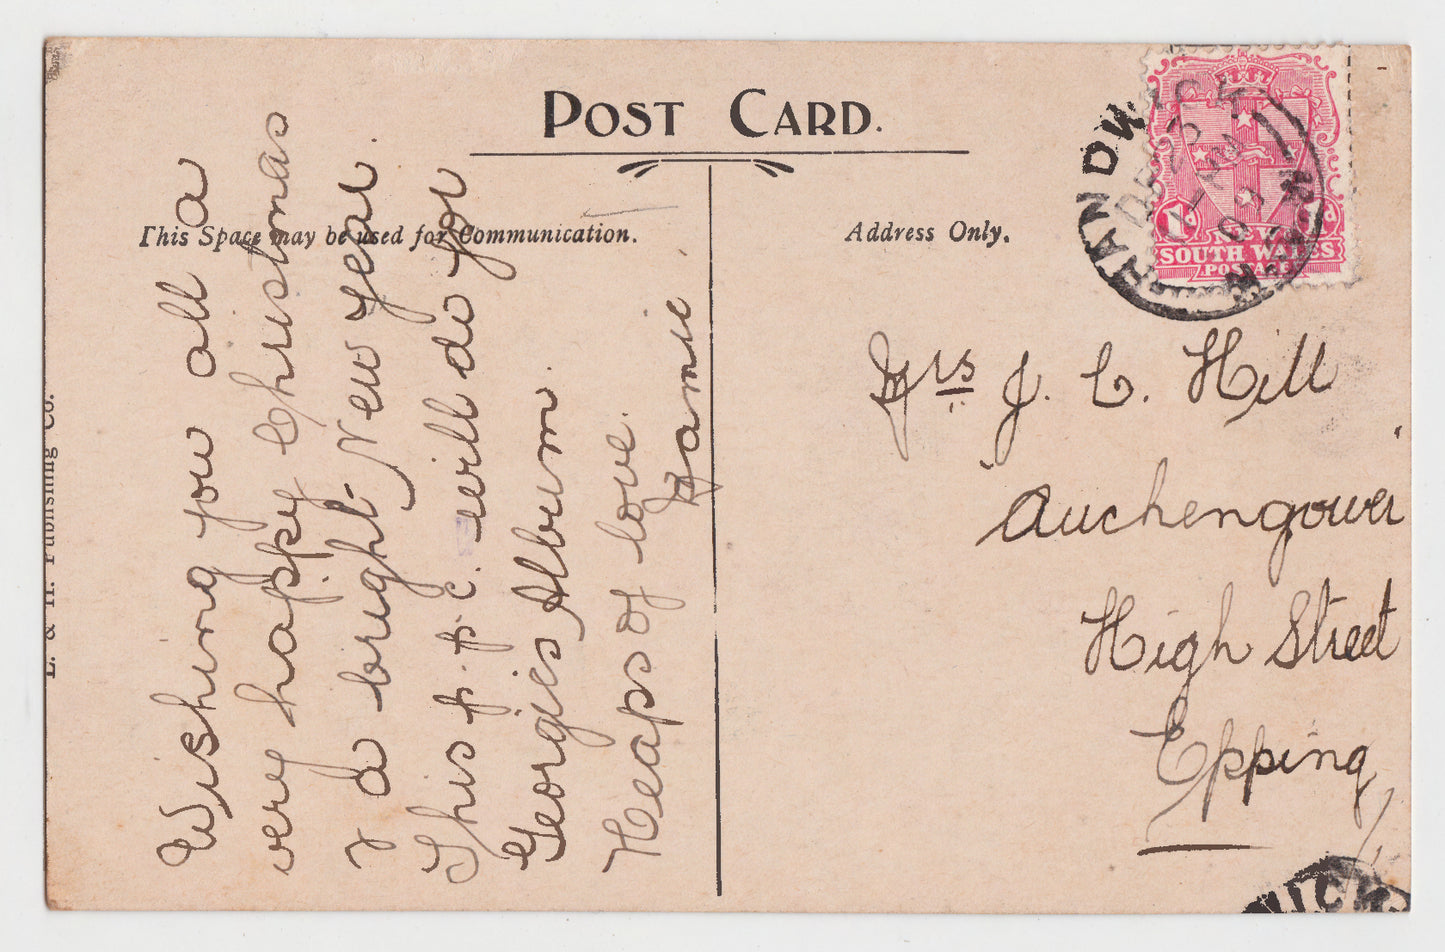 POST CARD.
This Space may be used for Communication.
Address Only.
Wishing you all a
very happy Christmas
& a bright New Year.
This p.p.c. will do for
Georgies Album.
Heaps of love.
Mrs J. C. Hill
Auchengower
High Street
Epping
RANDWICK
DE 23
09
N.S.W
1d
SOUTH WALES
POSTAGE
L. & H. Publishing Co.
WICK